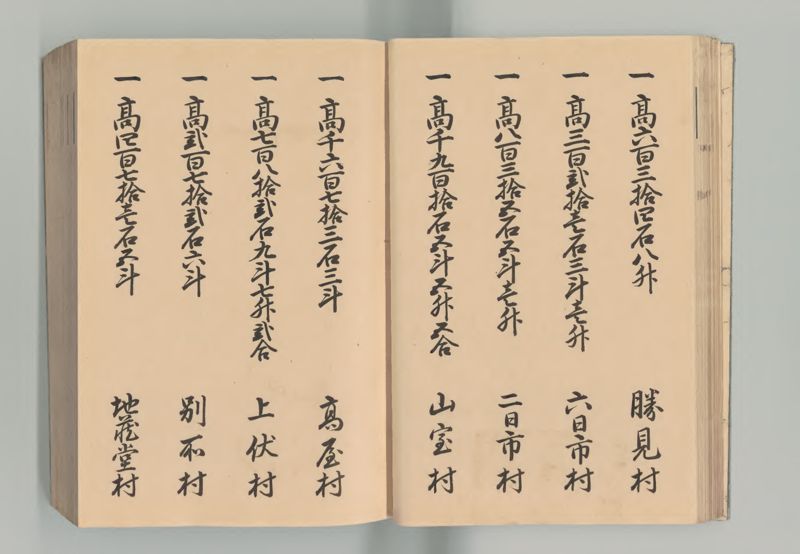 一 高六百三拾四石八升 勝見村
一 高三百弐拾壱石三斗壱升 六日市村
一 高八百三拾五石五斗壱升 二日市村
一 高千九百拾石五斗五升五合 山室村
一 高千六百七拾三石三斗 高屋村
一 高七百八拾弐石九斗七升弐合 上伏村
一 高弐百七拾弐石六斗 別所村
一 高四百七拾壱石五斗 地蔵堂村